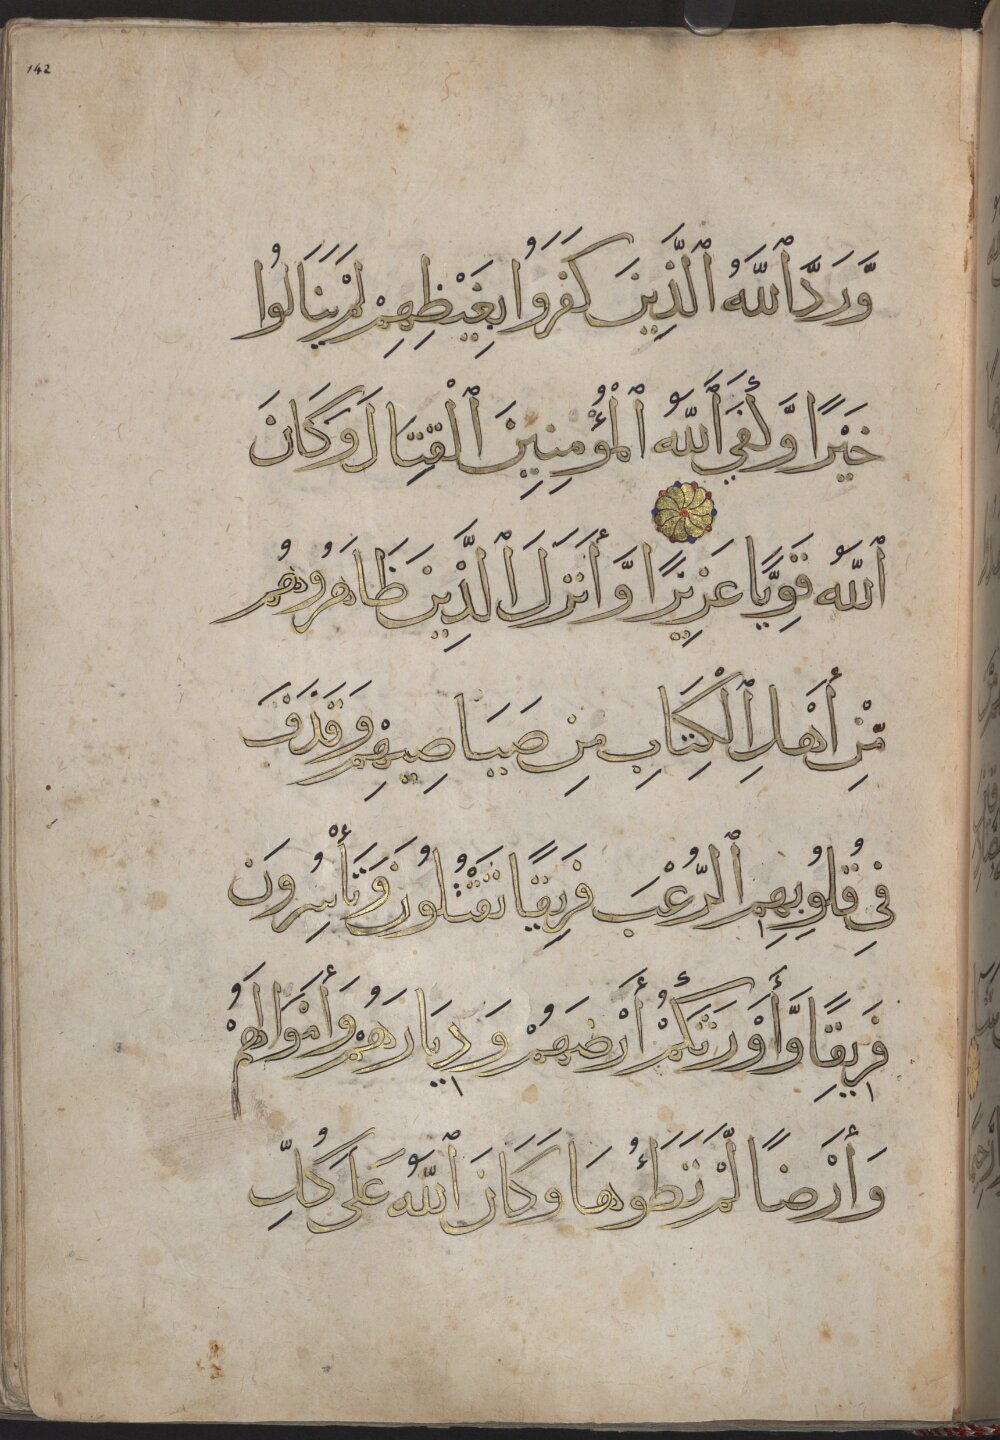 142
وَّرَدَّ ٱللَّهُ ٱلَّذِينَ كَفَرُوا بِغَيْظِهِمْ لَمْ يَنَالُوا
خَيْرًا وَّكَفَى ٱللَّهُ ٱلْمُؤْمِنِينَ ٱلْقِتَالَ وَكَانَ
ٱللَّهُ قَوِيًّا عَزِيزًا وَّأَنزَلَ ٱلَّذِينَ ظَاهَرُوهُم
مِّنْ أَهْلِ ٱلْكِتَابِ مِن صَيَاصِيهِمْ وَقَذَفَ
فِي قُلُوبِهِمُ ٱلرُّعْبَ فَرِيقًا تَقْتُلُونَ وَتَأْسِرُونَ
فَرِيقًا وَّأَوْرَثَكُمْ أَرْضَهُمْ وَدِيَارَهُمْ وَأَمْوَالَهُمْ
وَأَرْضًا لَّمْ تَطَؤُهَا وَكَانَ ٱللَّهُ عَلَى كُلِّ